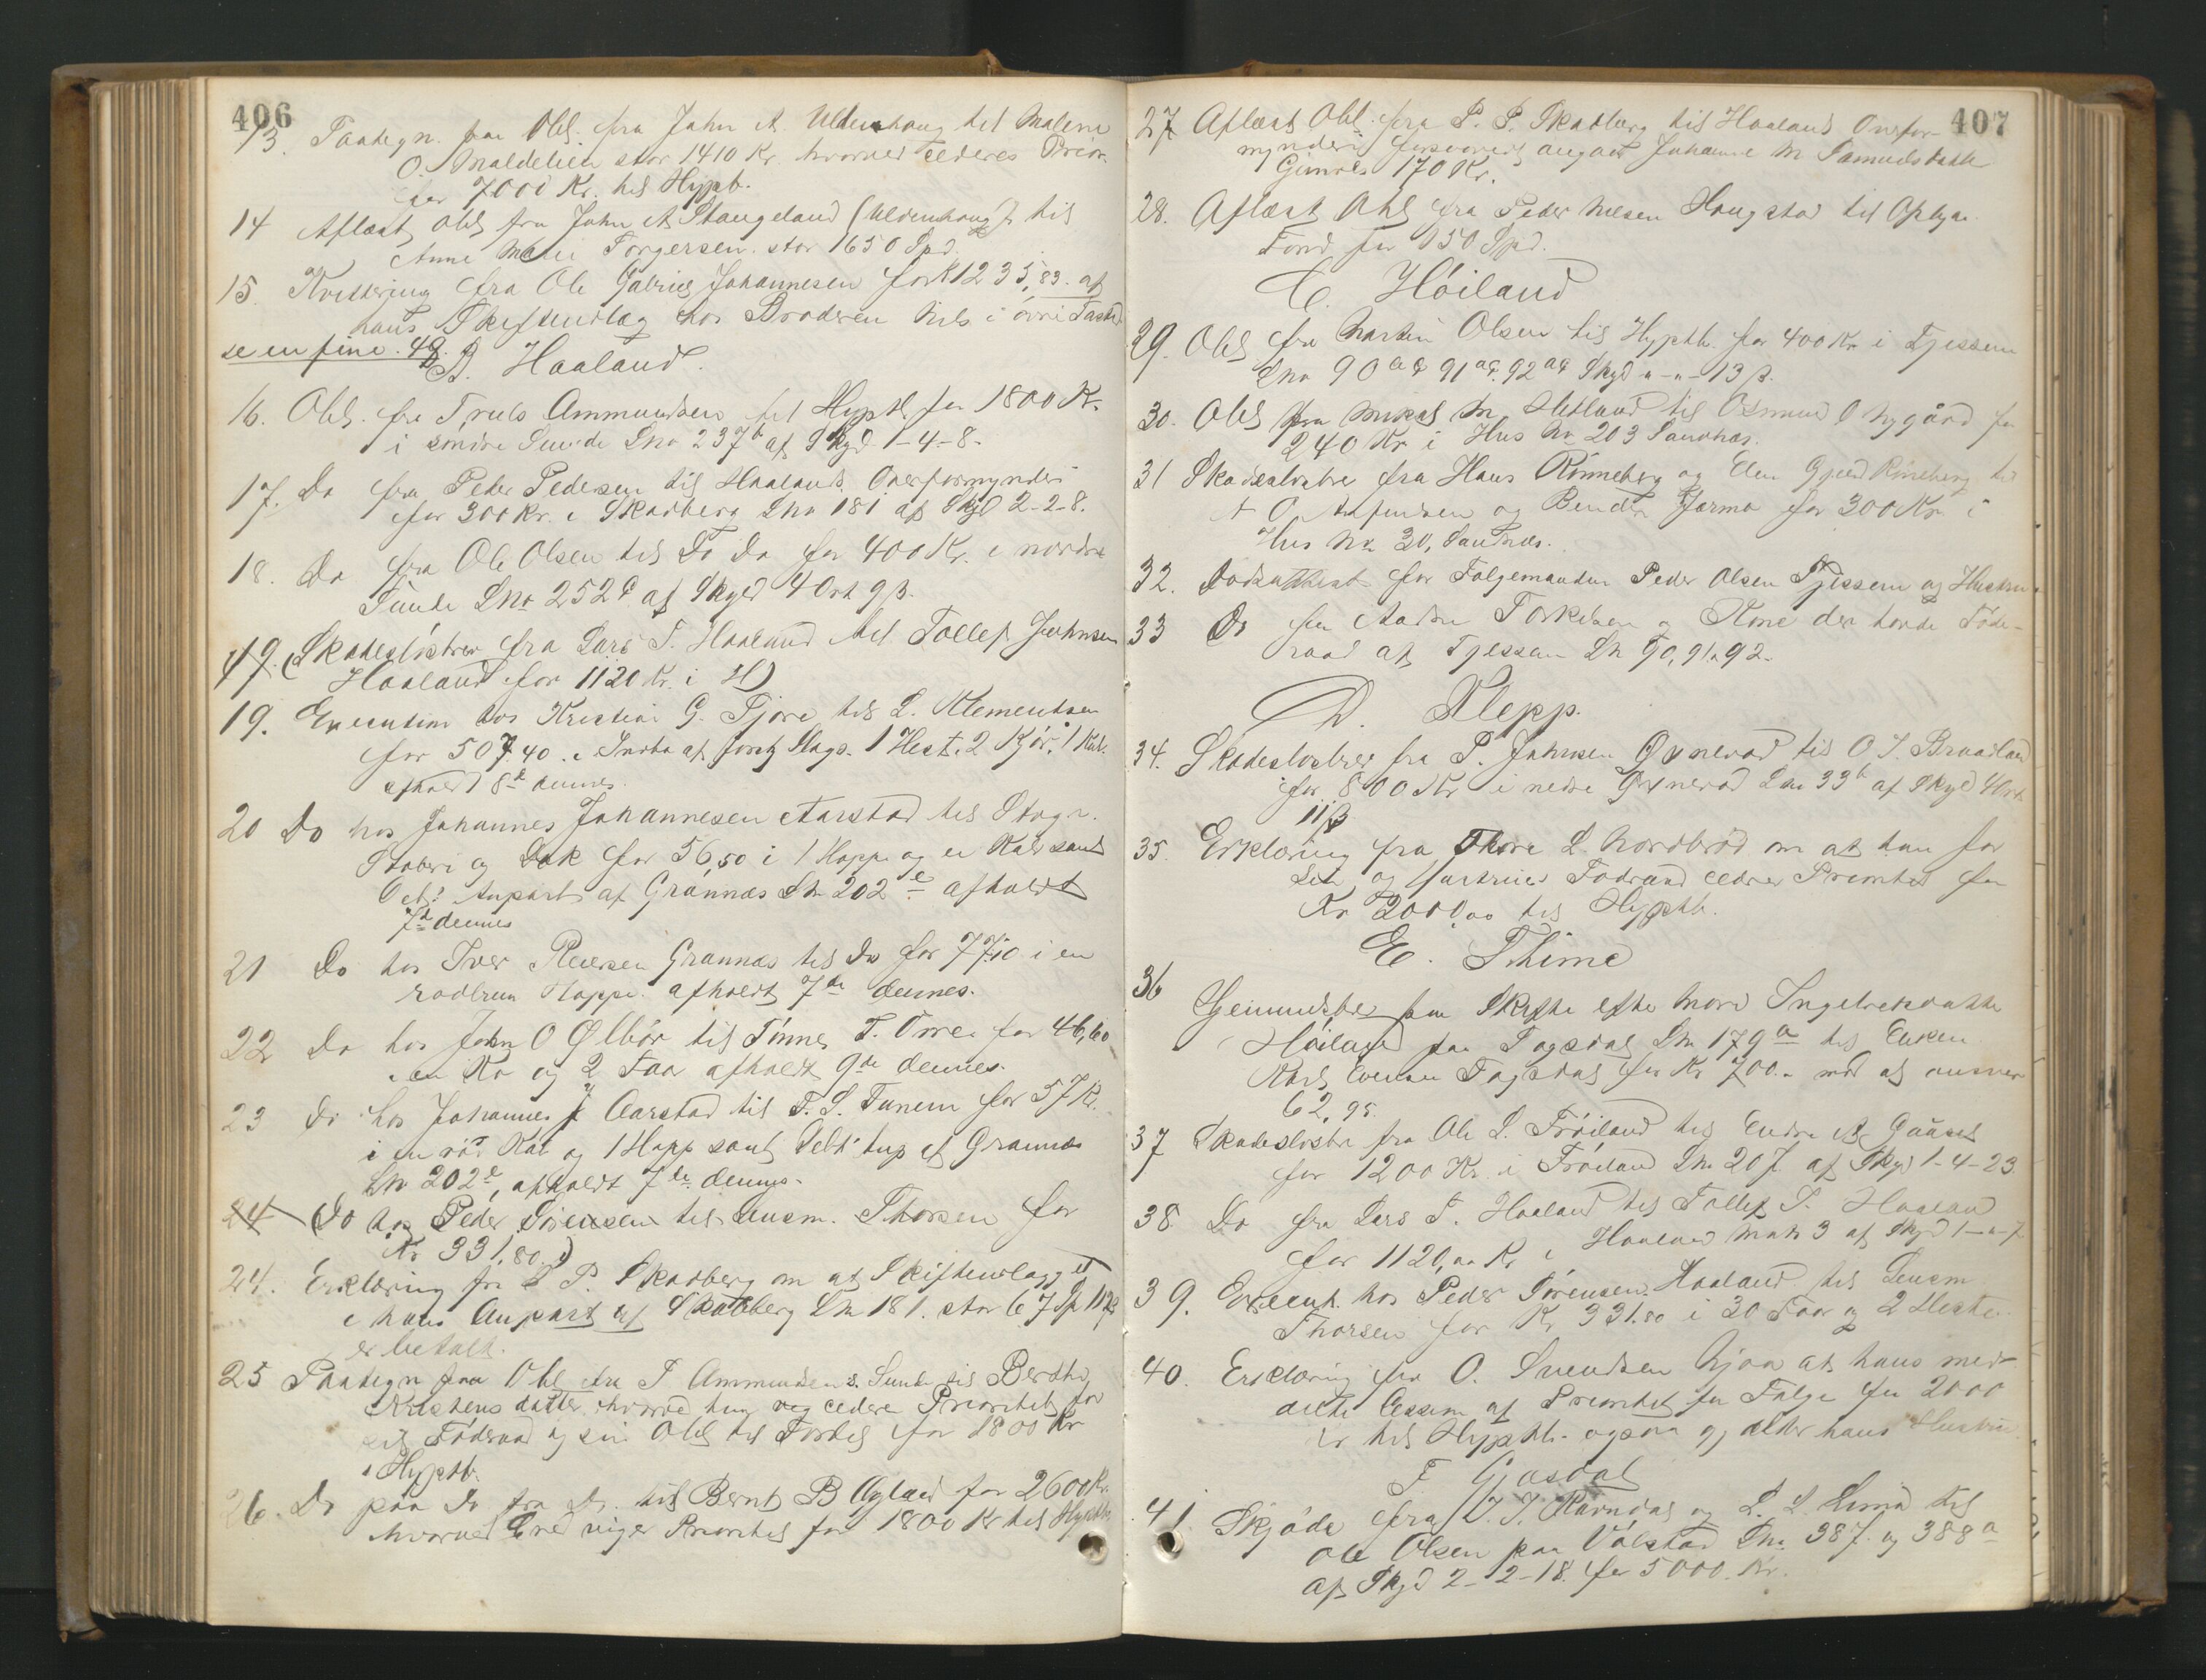 406
13. Paategn. paa Obl. fra John A. Uldenhoug til Malene
O. Maldelien stor 1410 Kr. hvorved cederes Prior.
for 7000 Kr. til Hypb.
14 Aflæst Obl fra John A Stangeland (Uldenhoug) til
Anne Marie Torgersen stor 1650 Spd.
15. Kvittering fra Ole Gabriel Johannesen for K 1235,83. af
hans Skiftendlæg hos Broderen Nils i øvre Tasta
se en fine. 42.
B. Haaland.
16. Obl. fra Truls Ammundsen til Hypth for 1800 Kr.
i søndre Sunde Lno 237 b af Skyld 1-4-8-
17. Do fra Peder Pedersen til Haalands Overformynderi
for 300 Kr. i Skadberg Lno 181 af Skyld 2-2-8.
18. Do fra Ole Olsen til Do Do for 400 Kr. i nordre
Sunde Lno 252 c af Skyld 4 Ort 9 β.
19. (Skadesløsbrev fra Lars T. Haaland til Tollef Johnsen
Haaland for 1120 Kr. i H)
19. Execution hos Kristian G. Tjøre til L. Klementsen
for 507.40. i Indbo af forskj Slags. 1 Hest. 2 Kjør. 1 Kalv.
afholdt 8de dennes.
20 Do hos Johannes Johannesen Aarstad til Stogn.
Stoberi og Dok for 56,50 i 1 Hoppe og en Kalv samt
Deb: Anpart af Grannæs Lno 202 e afholdt
7de dennes
21 Do hos Iver Petersen Grannæs til Do for 77.10 i en
rødbrun Hoppe. afholdt 7de dennes.
22 Do hos John O Ølbør til Tønnes T. Orre for 46,60
i en Ko og 2 Faar afholdt 9de dennes.
23 Do hos Johannes J Aarstad til T. S. Tunem for 57 Kr.
i en rød Kal og 1 Hopp samt Debt Anp af Grannæs
Lno 202 e, afholdt 7de dennes.
24 (Do hos Peder Sørensen til Lensm. Thorsen for
Kr 331,80.)
24. Erklæring fra P. P. Skadberg om at Skiftendlægget
i hans Anpart af Skadberg Lno 181. stor 67 Sp 112 β
er betalt.
25 Paategn paa Obl fra T Ammundsen s. Sunde til Berthe
Kristensdatter hvorved hun veg cedere Prioritet for
sit Føderaad og sin Obl til Fortes for 1800 Kr
i Hypth.
26. Do paa Do fra Do. til Bernt B Øgland for 2600 Kr.
hvorved Ene viger Prioritet for 1800 Kr til Hypth
407
27 Aflæst Obl. fra P. P. Skadberg til Haaland Overfor-
mynderi angaar Johanne M Samuelsdatter
Gimre 170 Kr.
28. Aflæst Obl fra Peder Nilsen Hougstad til Oplysn.
Fond for 150 Spd.
C. Høiland
29. Obl fra Martin Olsen til Hypth. for 400 Kr i Tjessem
Lno 90 91 92 Skyld " - " - 13 β.
30. Obl fra Mikal M. Hetland til Osmund O Nygård for
240 Kr i Hus No 203 Sandnæs.
31 Skadesløsbre fra Hans Rønneberg og Elen Gjerd Rønneberg til
A O Anfindsen og Bendte Jarma for 300 Kr i
Hus No 30, Sandnæs.
32. Dødsattest for Følgemanden Peder Olsen Tjessem og Hustru.
33 Do for Aadne Torkelsen og Kone der havde Føde-
raad af Tjessem Ln 90, 91 & 92.
D. Klepp.
34. Skadesløsbrev fra P. Johnsen Øxnevad til O. J. Braaland
for 800 Kr i nedre Øxnevad Lno 33 b af Skyld 4 Ort
11 β
35. Erklæring fra Thore L Nordbrød om at han for
sit og Hustrues Fødraad cederer Prioritet for
Kr 2000,00 til Hypthb.
E. Thime
36
Hjemmelsbr. paa Skifte efter Mari Ingebretsdatter
Høiland paa Tagsdal Lno 179 a til Enken
Karl Evensen Tagsdal for Kr 700.- mod at
62,95.
37 Skadesløsbre fra Ole L. Frøiland til Endre A Gaasel
for 1200 Kr. i Frøiland Lno 207. af Skyld 1-4-23.
38. Do fra Lars T. Haaland til Tollef T. Haaland
for 1120,00 Kr i Haaland Matr 3 af Skyld 1-"-7
39. Execut. hos Peder Sørensen Haaland til Lensm
Thorsen for Kr 331.80 i 30 Faar og 2 Heste
40. Erklæring fra O. Svendsen Njaa at hans med-
delte Cession af Prioritet for Følge for 2000
Kr til Hypthb. ogsaa gjælder hans Hustru.
F Gjesdal
41. Skjøde fra J. J. Ravndal og L. L. Lima til
Ole Olsen paa Vølstad Lno 387. og 388 a
af Skyld 2-2-18. for 5000. Kr.